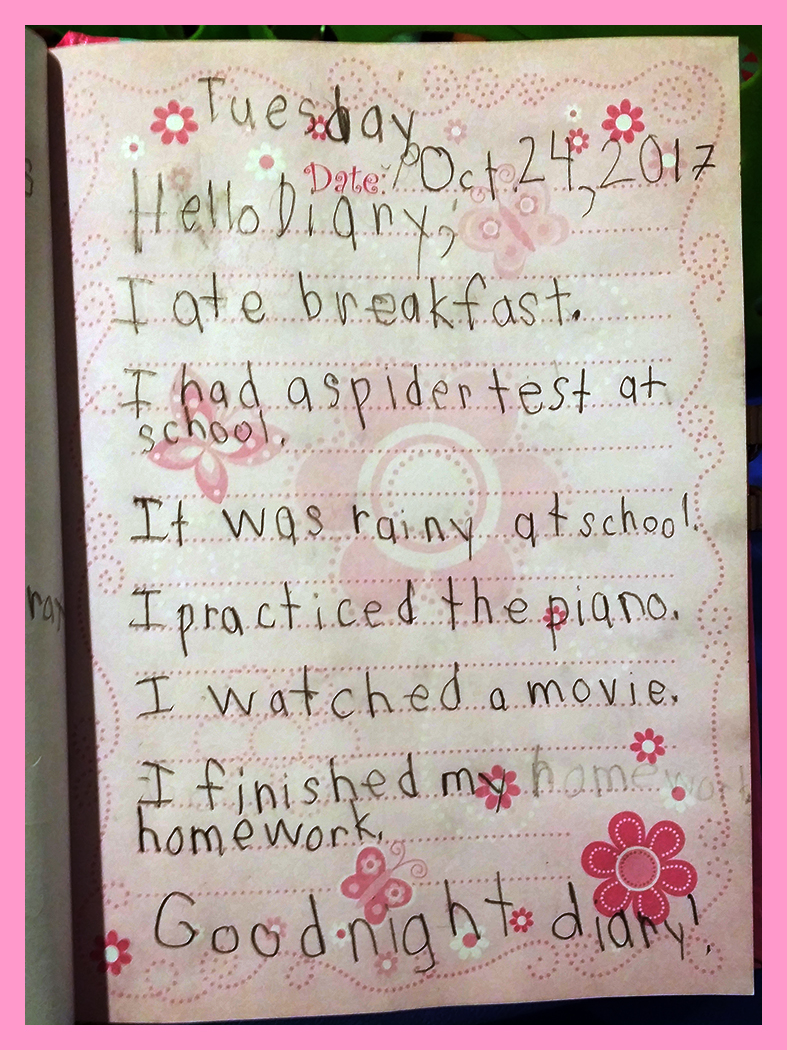 Tuesday
Date: Oct. 24, 2017
Hello Diary,
I ate breakfast.
I had a spider test at
school.
It was rainy at school.
I practiced the piano.
I watched a movie.
I finished my homework
homework.
Good night diary!